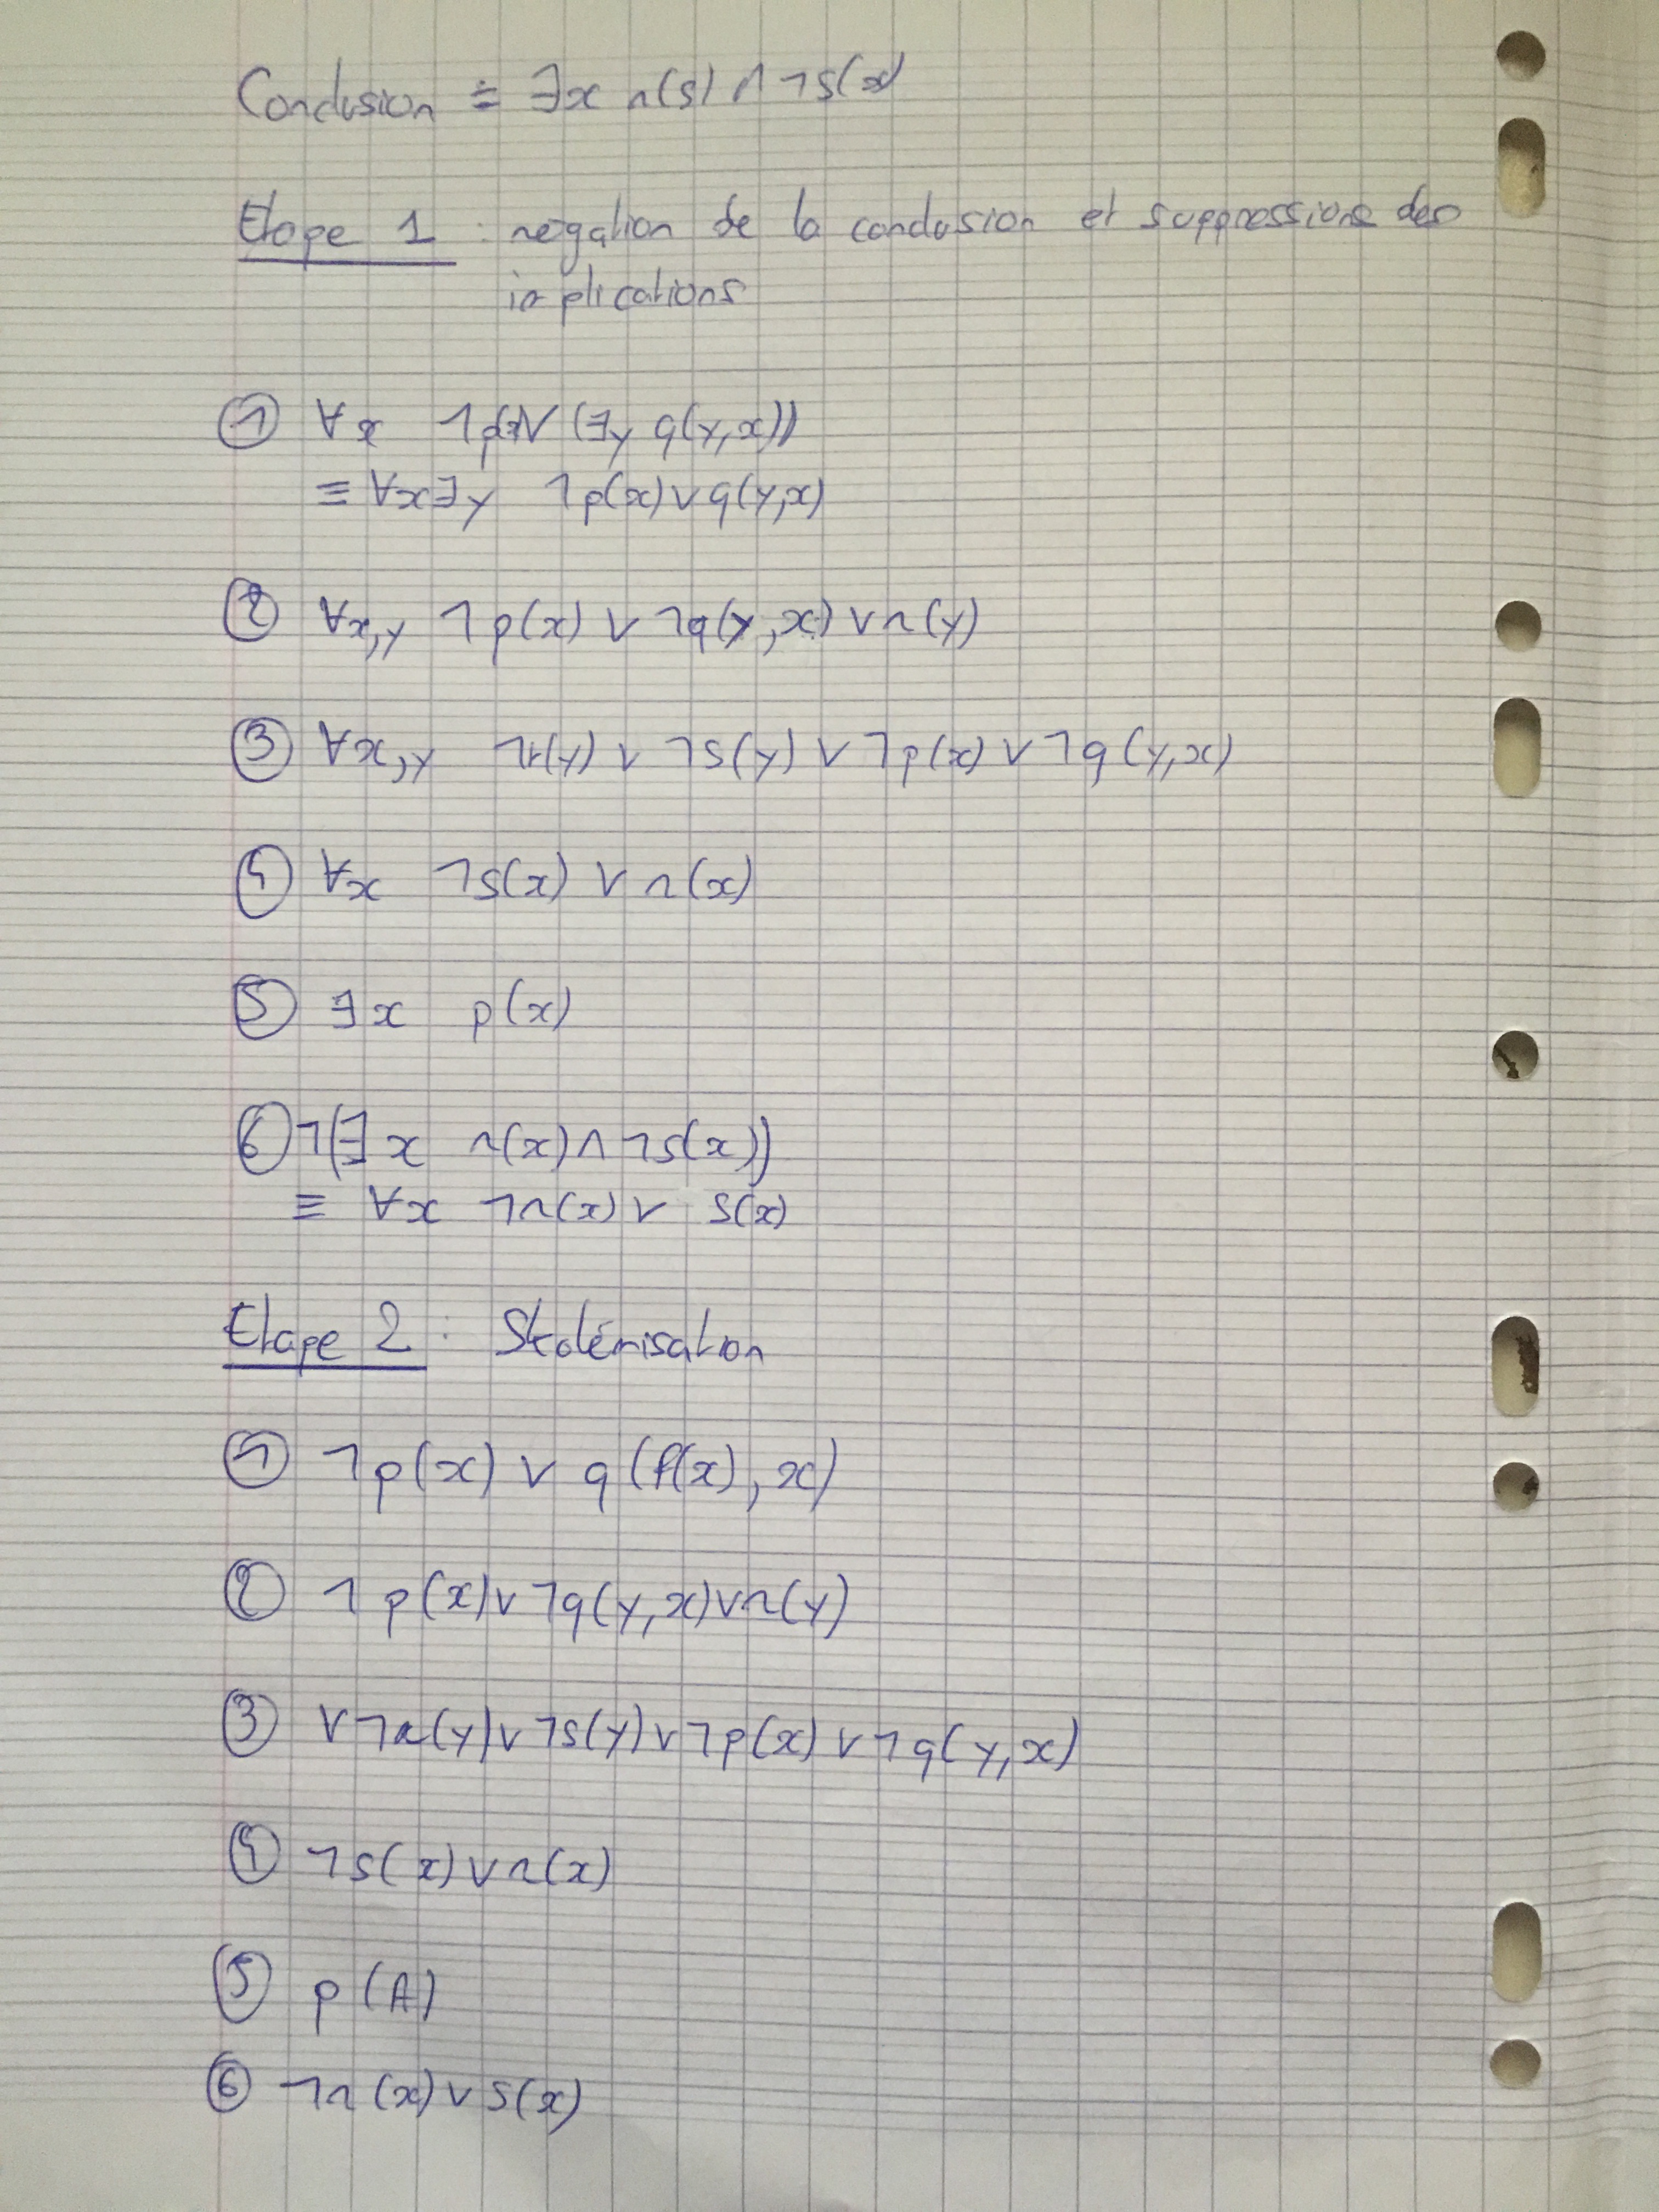 Conclusion ≡ ∃x r(s) ∧ ¬s(x)
Etape 1 : négation de la conclusion et suppressions des
implications
① ∀x ¬p(x)∨(∃y q(y,x))
≡ ∀x∃y ¬p(x)∨q(y,x)
② ∀x,y ¬p(x) ∨ ¬q(y,x) ∨ r(y)
③ ∀x,y ¬r(y) ∨ ¬s(y) ∨ ¬p(x) ∨ ¬q(y,x)
④ ∀x ¬s(x) ∨ r(x)
⑤ ∃x p(x)
⑥ ¬(∃x r(x)∧¬s(x))
≡ ∀x ¬r(x) ∨ s(x)
Etape 2 : Skolémisation
① ¬p(x) ∨ q(f(x),x)
② ¬p(x)∨¬q(y,x)∨r(y)
③ ∨¬r(y)∨¬s(y)∨¬p(x)∨¬q(y,x)
④ ¬s(x)∨r(x)
⑤ p(A)
⑥ ¬r(x)∨s(x)